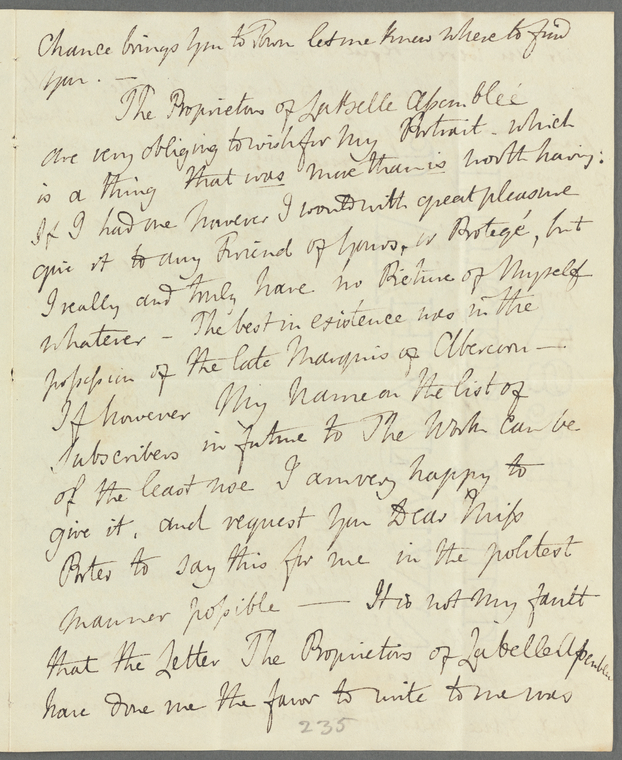 Chance brings you to Town let me know where to find
you. —
The Proprietors of La Belle Assemblée
are very obliging to wish for my Portrait - which
is a thing that was more than is worth having:
If I had one however I would with great pleasure
give it to any Friend of yours, or Protegé, but
I really and truly have no Picture of Myself
whatever - The best in existence was in the
possession of the late Marquis of Abercorn —
If however My Name on the list of
Subscribers in future to The Work can be
of the least use I am very happy to
give it, and request you Dear Miss
Porter to say this for me in the politest
manner possible — It is not My fault
that the Letter The Proprietors of La belle Assemblee
have done me the favor to write to me was
235